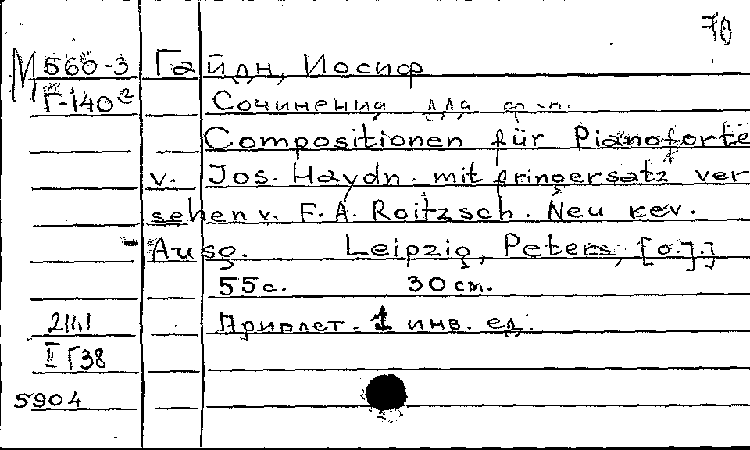 70
М 560-3 Гайдн, Иосиф
Г-140² Сочинения для ф-п.
Compositionen für Pianoforte
v. Jos. Haydn. mit fringersatz ver
sehen v. F. A. Roitzsch. Neu rev.
Ausg. Leipzig, Peters, [o.].;
55 с. 30 cm.
2111 Приплет. 1 инв. ед.
II Г38
5904